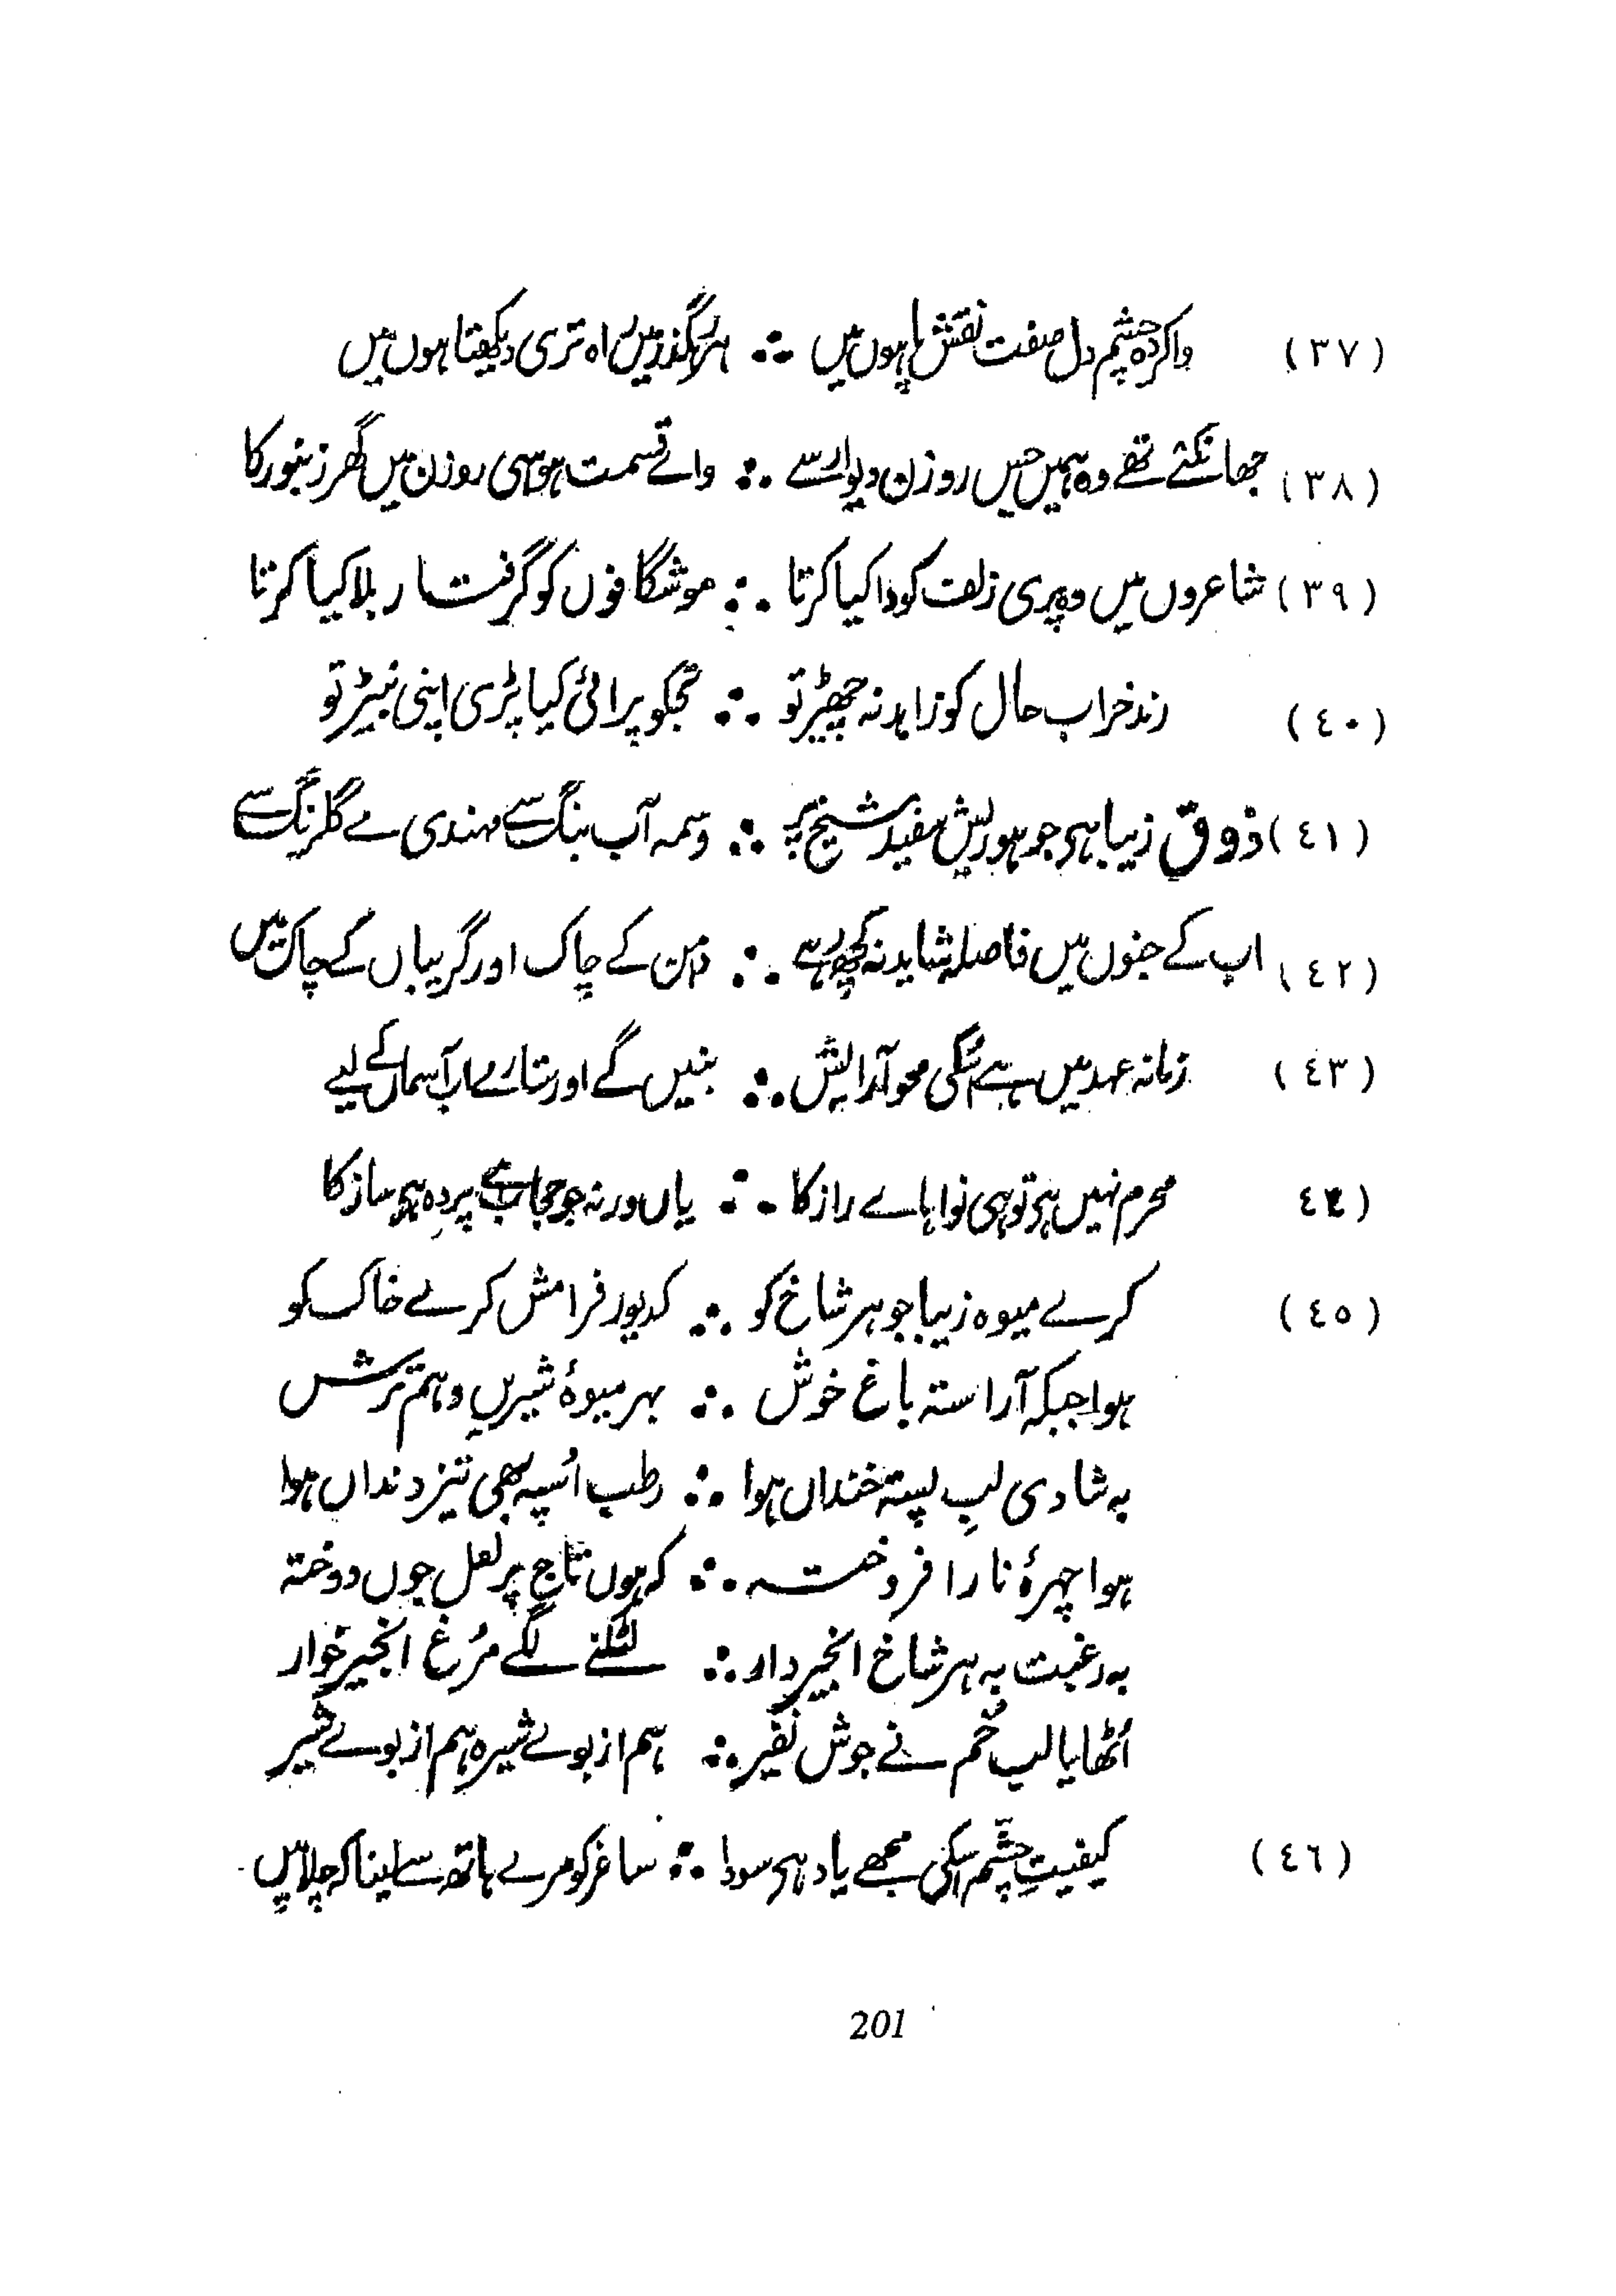 (٣٧) واکردہ چشم دل صفت نقش پا ہوں میں ∴ ہر رہگذر میں راہ تری دیکھتا ہوں میں
(٣٨) جھانکتے تھے وہ ہمیں جس روزن دیوار سے ∴ وائے قسمت ہو اسی روزن میں گھر زنبور کا
(٣٩) شاعروں میں وہ پری زلف کو وا کیا کرتا ∴ موشگافوں کو گرفتار بلا کیا کرتا
(٤٠) رند خراب حال کو زاہد نہ چھیڑ تو ∴ تجکو پرائی کیا پڑی اپنی نبیڑ تو
(٤١) ذوق زیبا ہی جو ہو ریش سفید شیخ پر ∴ وسمہ آب بنگ سے مہندی مے گلرنگ سے
(٤٢) اب کے جنوں میں فاصلہ شاید نہ کچھ رہے ∴ دامن کے چاک اور گریباں کے چاک میں
(٤٣) زمانہ عہد میں ہے اُسکی محو آرایش ∴ بنیں گے اور ستارے اب آسماں کے لیے
٤٤) محرم نہیں ہی تو ہی نوا ہاے راز کا ∴ یاں ورنہ جو حجاب ہے پردہ ہی ساز کا
(٤٥) کرے میوہ زیبا جو ہر شاخ کو ∴ کدیور فرامش کرے خاک کو
ہوا جبکہ آراستہ باغ خوش ∴ بہر میوۂ شیریں و ہم ترش
بہ شادی لبِ پستہ خنداں ہوا ∴ رطب اُسپہ بھی تیز دنداں ہوا
ہوا چہرۂ نار افروختہ ∴ کہ ہوں تاج پر لعل جوں دوختہ
بہ رغبت بہ ہر شاخ انجیر دار ∴ لٹکنے لگے مُرغ انجیر خوار
اُٹھایا لب خُم نے جوش نفیر ∴ ہم از بوے شیرہ ہم از بوے شیر
(٤٦) کیفیتِ چشم اسکی مجھے یاد ہی سودا ∴ ساغر کو مرے ہاتھ سے لینا کہ چلا میں
201